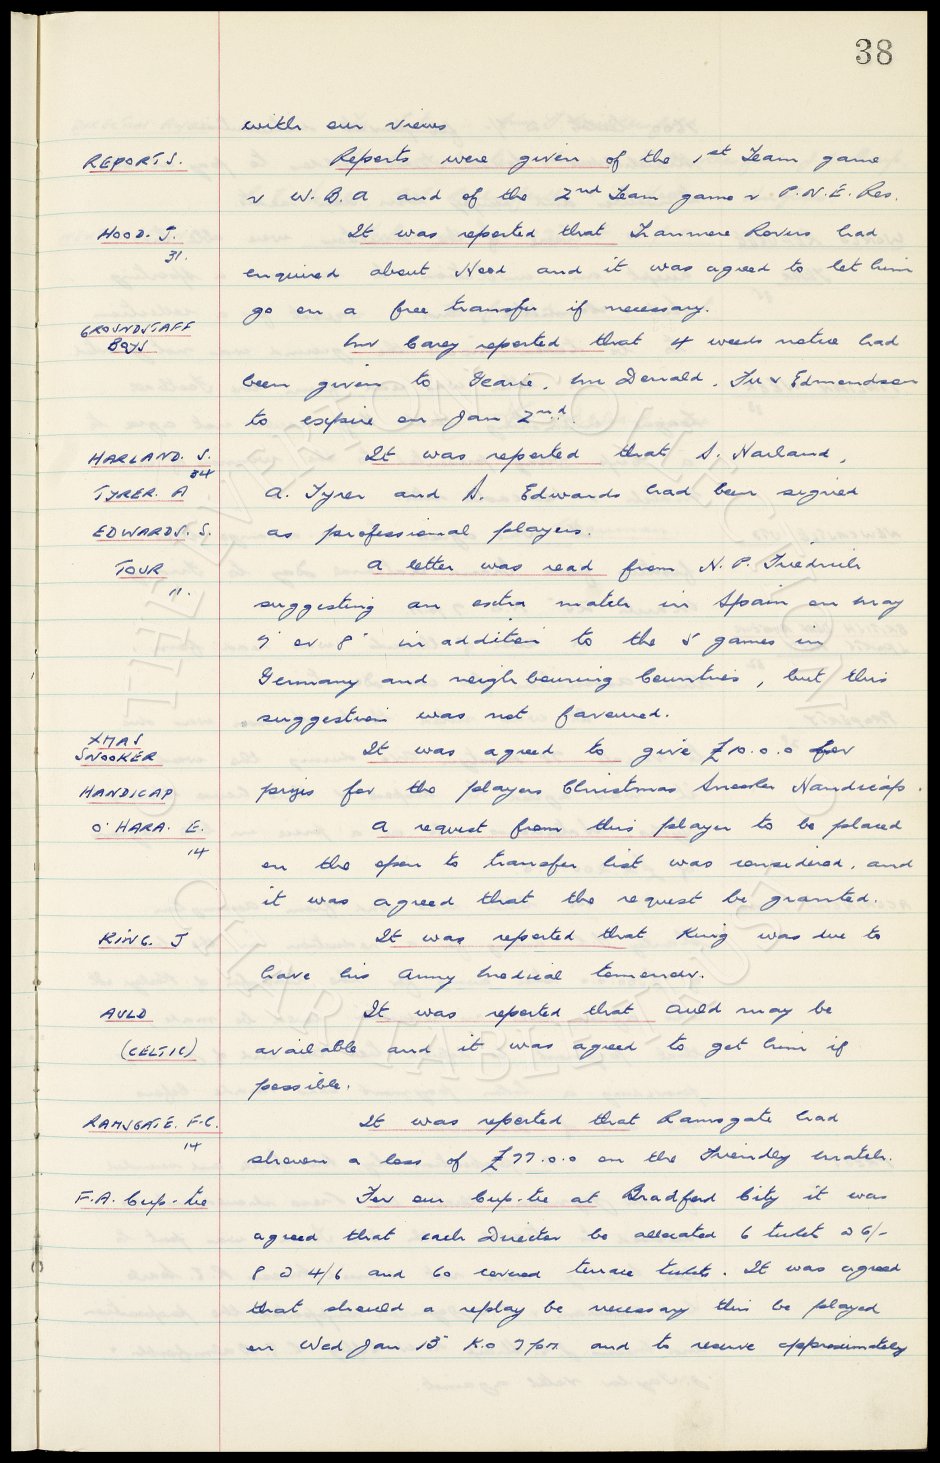 38
with our views
REPORTS. Reports were given of the 1st Team game
v W.B.A and of the 2nd Team game v P.N.E. Res.
HOOD. J. It was reported that Tranmere Rovers had
31.
enquired about Hood and it was agreed to let him
go on a free transfer if necessary.
GROUNDSTAFF
BOYS Mr Carey reported that 4 weeks notice had
been given to Gearie, McDonald, & Edmondson
to expire on Jan 2nd.
HARLAND. S. It was reported that S. Harland,
34
TYRER. A A. Tyrer and S. Edwards had been signed
EDWARDS. S. as professional players.
TOUR A letter was read from N. P. Friedrich
11.
suggesting an extra match in Spain on May
7 or 8 in addition to the 5 games in
Germany and neighbouring Countries, but this
suggestion was not favoured.
XMAS
SNOOKER It was agreed to give £10.0.0 for
HANDICAP prizes for the players Christmas Snooker Handicap.
O'HARA. E. A request from this player to be placed
14
on the open to transfer list was considered, and
it was agreed that the request be granted.
KING. J It was reported that King was due to
have his Army Medical tomorrow.
AULD It was reported that Auld may be
(CELTIC) available and it was agreed to get him if
possible.
RAMSGATE. F.C. It was reported that Ramsgate had
14
shown a loss of £77.0.0 on the Friendly match.
F.A. Cup-tie For our Cup-tie at Bradford City it was
agreed that each Director be allocated 6 tickets @ 6/-
8 @ 4/6 and 60 covered terrace tickets. It was agreed
that should a replay be necessary this be played
on Wed Jan 13 K.O 7pm and to reserve approximately
THE EVERTON COLLECTION
CHARITABLE TRUST